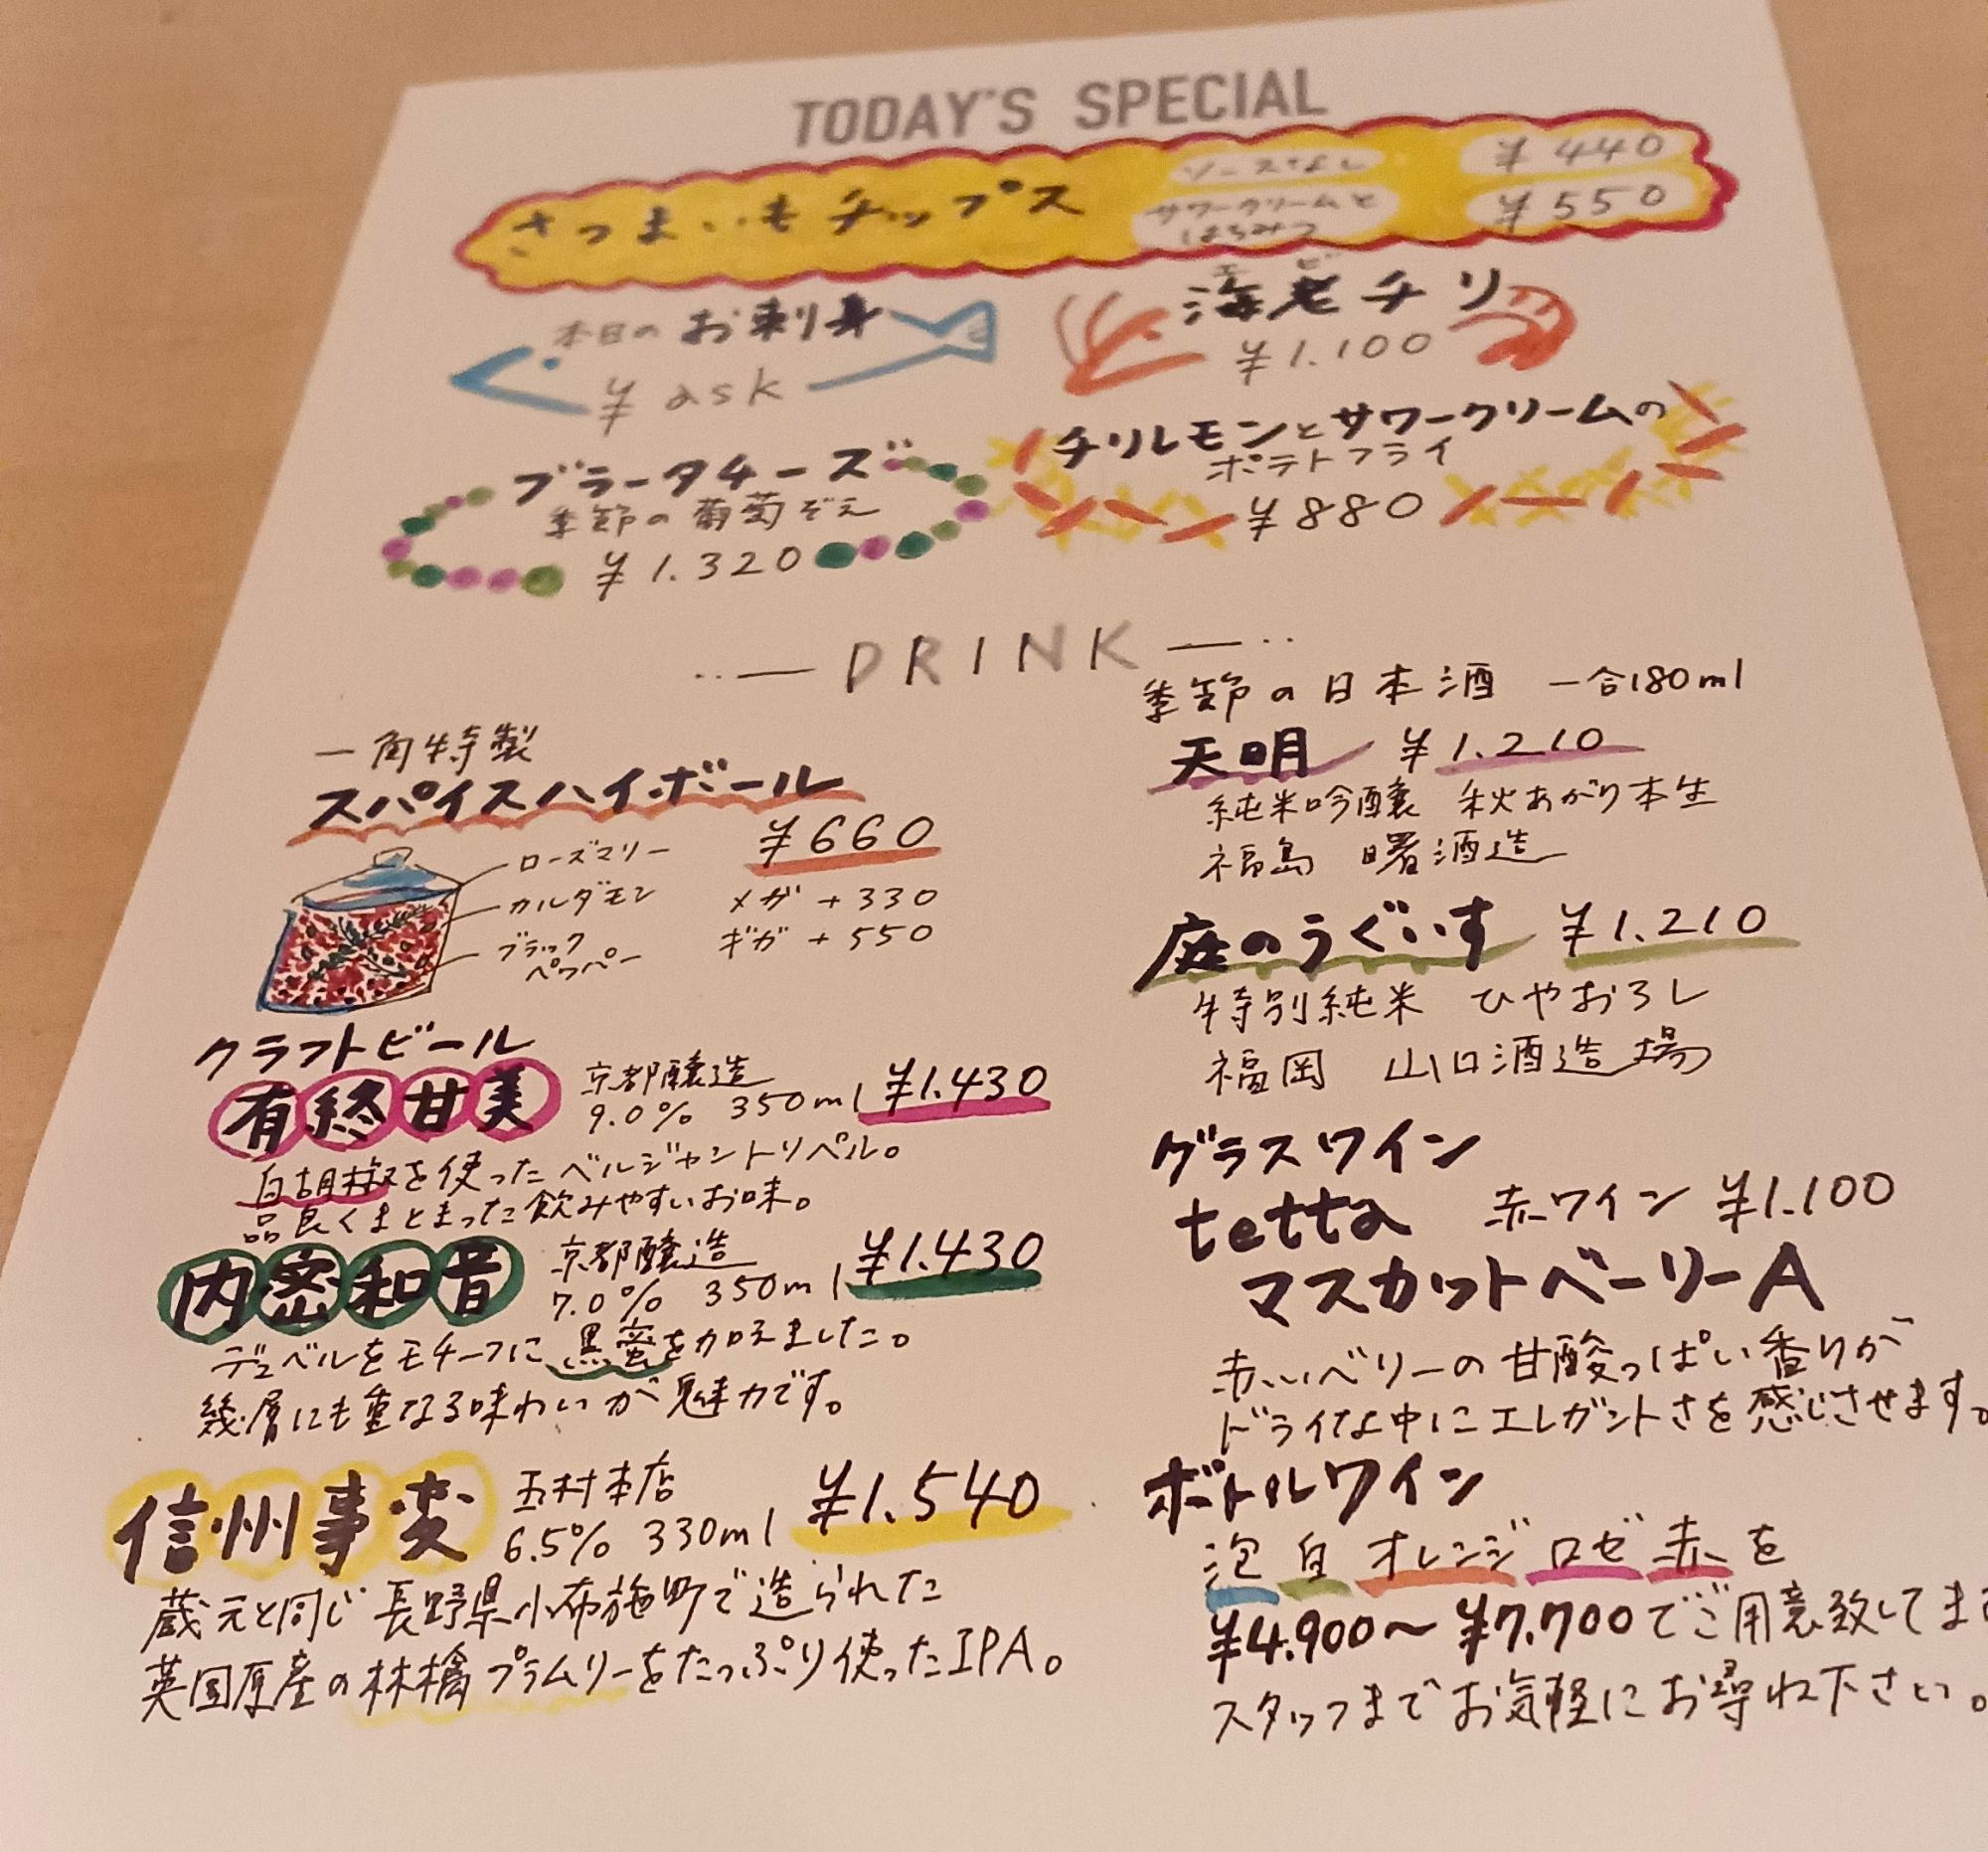 TODAY'S SPECIAL
さつまいもチップス
ソースなし ¥440
サワークリームと
はちみつ ¥550
本日の お刺身
¥ ask
エビ
海老チリ
¥1.100
ブラータチーズ
季節の葡萄ぞえ
¥1.320
チリレモンとサワークリームの
ポテトフライ
¥880
DRINK
一角特製
スパイスハイボール
¥660
ローズマリー
カルダモン
ブラック
ペッパー
メガ +330
ギガ +550
クラフトビール
有終甘美
京都醸造
9.0% 350ml ¥1.430
白胡椒を使ったベルジャントリペル。
品良くまとまった飲みやすいお味。
内密和音
京都醸造
7.0% 350ml ¥1.430
デュベルをモチーフに黒蜜を加えました。
幾層にも重なる味わいが魅力です。
信州事変
玉村本店
6.5% 330ml ¥1.540
蔵元と同じ長野県小布施町で造られた
英国原産の林檎ブラムリーをたっぷり使ったIPA。
季節の日本酒 一合180ml
天明 ¥1.210
純米吟醸 秋あがり本生
福島 曙酒造
庭のうぐいす ¥1.210
特別純米 ひやおろし
福岡 山口酒造場
グラスワイン
tetta 赤ワイン ¥1.100
マスカットベーリーA
赤いベリーの甘酸っぱい香りが
ドライな中にエレガントさを感じさせます。
ボトルワイン
泡 白 オレンジ ロゼ 赤 を
¥4.900〜¥7.700でご用意致してます
スタッフまでお気軽にお尋ね下さい。